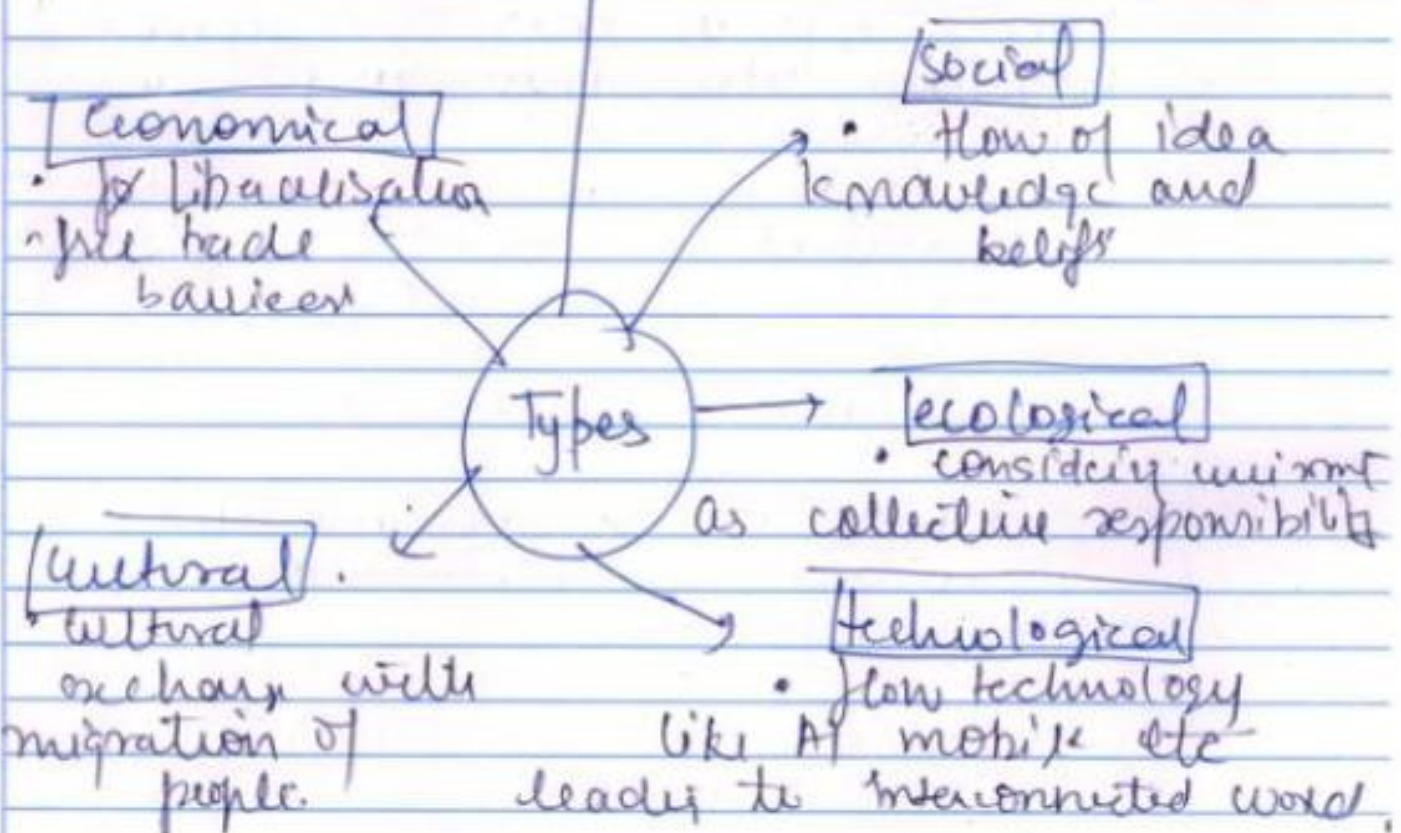 Economical
• Liberalisation
- free trade
barriers
Social
• flow of idea
knowledge and
beliefs
Types
ecological
• considering
as collective responsibility
Cultural
• Cultural
exchange with
migration of
people.
technological
• flow technology
like AI mobile etc
leading to interconnected world.